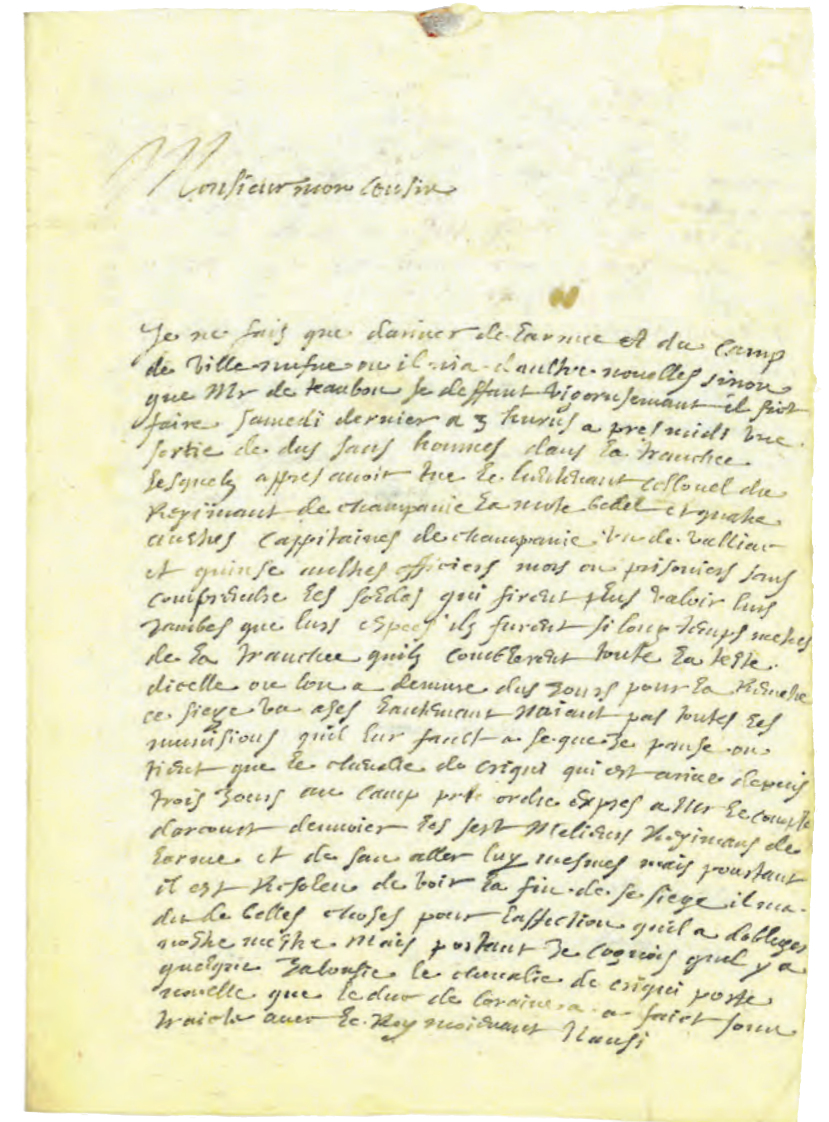 Monsieur mon cousin
Je ne fais que dariver de larmee et du camp
de Ville nufue ou il nia daultre nouelles sinon
que Mr de teaubon se deffant vigorusemant il fiot
faire samedi dernier a 3 hurus apres midi vne
sortie de dus sans hommes dans la tranchee
lesquelz appres auoir tue le luitenant collonel du
Regimant de champanie la mote bedel et quatre
aultres cappitaines de champanie vn de valliac
et quinse aultres officiers mors ou prisoniers sans
comprendre les soldas qui firent plus valoir lurs
jambes que lurs espees ilz furent si lonc temps metres
de la tranchee quilz comblerent toute la teste
dicelle ou lon a demure dus jours pour la
ce siege va ases lantemant naiant pas toutes les
munisions quil lur fault a se que je panse on
tient que le cheualie de criqui qui est ariue depuis
trois jours au camp ordre expres a Mr le compte
darcourt denuoier les set melieurs Regimans de
larmee et de san aller luy mesmes mais pourtant
il est Resoleu de voir la fin de se siege il ma
dit de belles choses pour laffection quil a dobliger
nostre mestre mais portant je cognois quil y a
quelque jalousie le cheualie de criqui porte
nouelle que le duc de loraine a faict son
traicte auec le Roy moienant Nansi